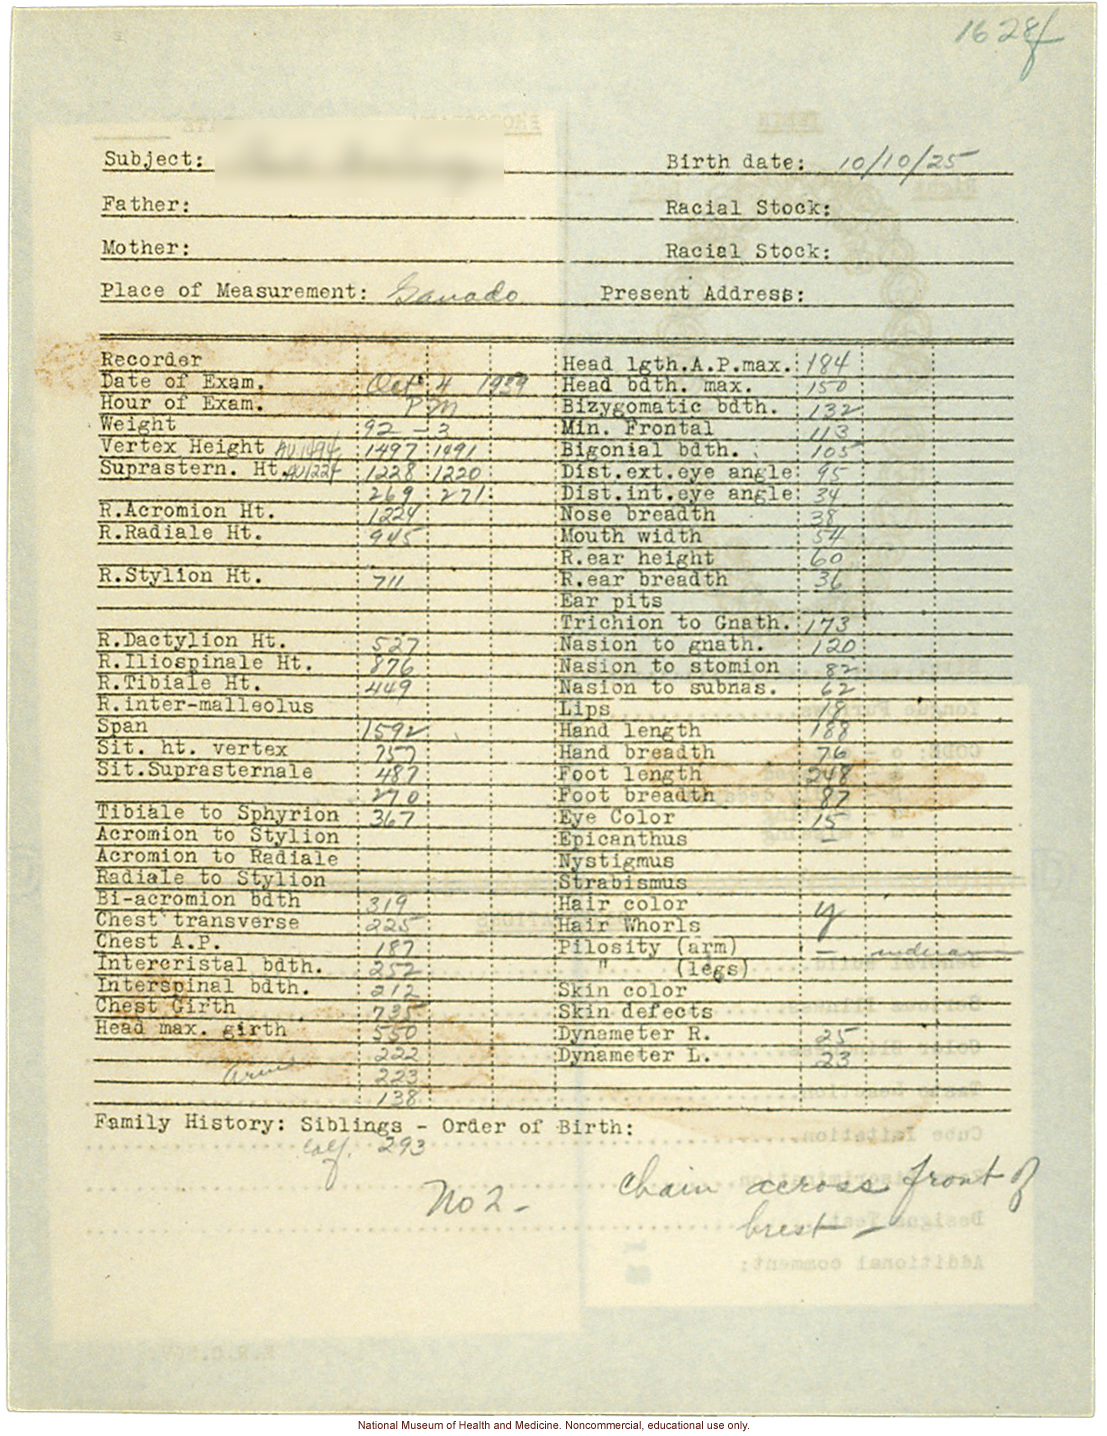 1628f
Subject: Birth date: 10/10/25
Father: Racial Stock:
Mother: Racial Stock:
Place of Measurement: Ganado Present Address:
Recorder Head lgth.A.P.max. 184
Date of Exam. Oct 4 1939 Head bdth. max. 150
Hour of Exam. PM Bizygomatic bdth. 132
Weight 92 - 2 Min. Frontal 113
Vertex Height AV 1494 1497 1491 Bigonial bdth. 105
Suprastern. Ht. AV 1224 1228 1220 Dist.ext.eye angle 95
269 271 Dist.int.eye angle 34
R.Acromion Ht. 1224 Nose breadth 38
R.Radiale Ht. 945 Mouth width 54
R.ear height 60
R.Stylion Ht. 711 R.ear breadth 36
Ear pits
Trichion to Gnath. 173
R.Dactylion Ht. 527 Nasion to gnath. 120
R.Iliospinale Ht. 876 Nasion to stomion 82
R.Tibiale Ht. 449 Nasion to subnas. 62
R.inter-malleolus Lips 18
Span 1592 Hand length 188
Sit. ht. vertex 757 Hand breadth 76
Sit.Suprasternale 487 Foot length 248
270 Foot breadth 87
Tibiale to Sphyrion 367 Eye Color 15
Acromion to Stylion Epicanthus –
Acromion to Radiale Nystigmus
Radiale to Stylion Strabismus
Bi-acromion bdth 319 Hair color y
Chest transverse 225 Hair Whorls
Chest A.P. 187 Pilosity (arm) –
Intercristal bdth. 252 " (legs)
Interspinal bdth. 212 Skin color
Chest Girth 735 Skin defects
Head max. girth 550 Dynameter R. 25
222 Dynameter L. 23
Arm 223
138
Family History: Siblings - Order of Birth:
Calf. 293
No 2 - Chain across front of
brest -
National Museum of Health and Medicine. Noncommercial, educational use only.